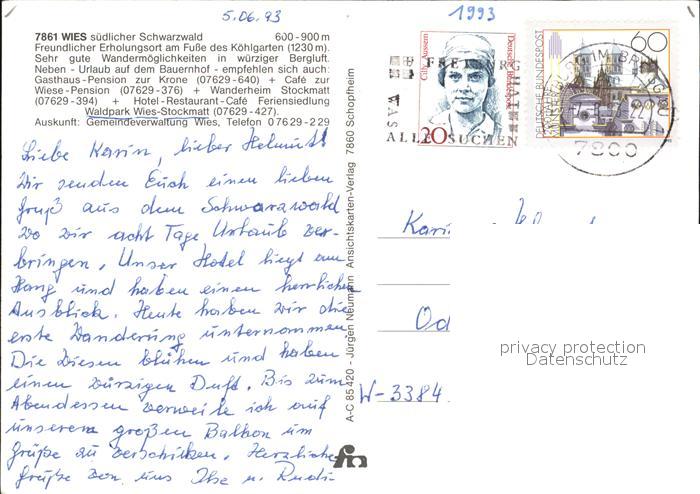 5.06.93
1993
7861 WIES südlicher Schwarzwald 600-900 m
Freundlicher Erholungsort am Fuße des Köhlgarten (1230 m).
Sehr gute Wandermöglichkeiten in würziger Bergluft.
Neben - Urlaub auf dem Bauernhof - empfehlen sich auch:
Gasthaus-Pension zur Krone (07629-640) + Café zur
Wiese-Pension (07629-376) + Wanderheim Stockmatt
(07629-394) + Hotel-Restaurant-Café Feriensiedlung
Waldpark Wies-Stockmatt (07629-427).
Auskunft: Gemeindeverwaltung Wies, Telefon 07629-229
Liebe Karin, lieber Helmut!
Wir senden Euch einen lieben
Gruß aus dem Schwarzwald
wo wir acht Tage Urlaub ver-
bringen. Unser Hotel liegt am
Hang und haben einen herrlichen
Ausblick. Heute haben wir die
erste Wanderung unternommen.
Die Wiesen blühen und haben
einen würzigen Duft. Bis zum
Abendessen verweile ich auf
unserem großen Balkon um
Grüße zu verschicken. Herzliche
Grüße von uns Ilse u. Rudi
A-C 85420 - Jürgen Neumann Ansichtskarten-Verlag 7860 Schopfheim
Cilly Aussem
Deutsche Bundespost
20
DEUTSCHE BUNDESPOST
60
FREIBURG
HAT
WAS
ALLE SUCHEN
FREIBURG IM BREISGAU
22
7800
Kari
Od
W-3384
privacy protection
Datenschutz